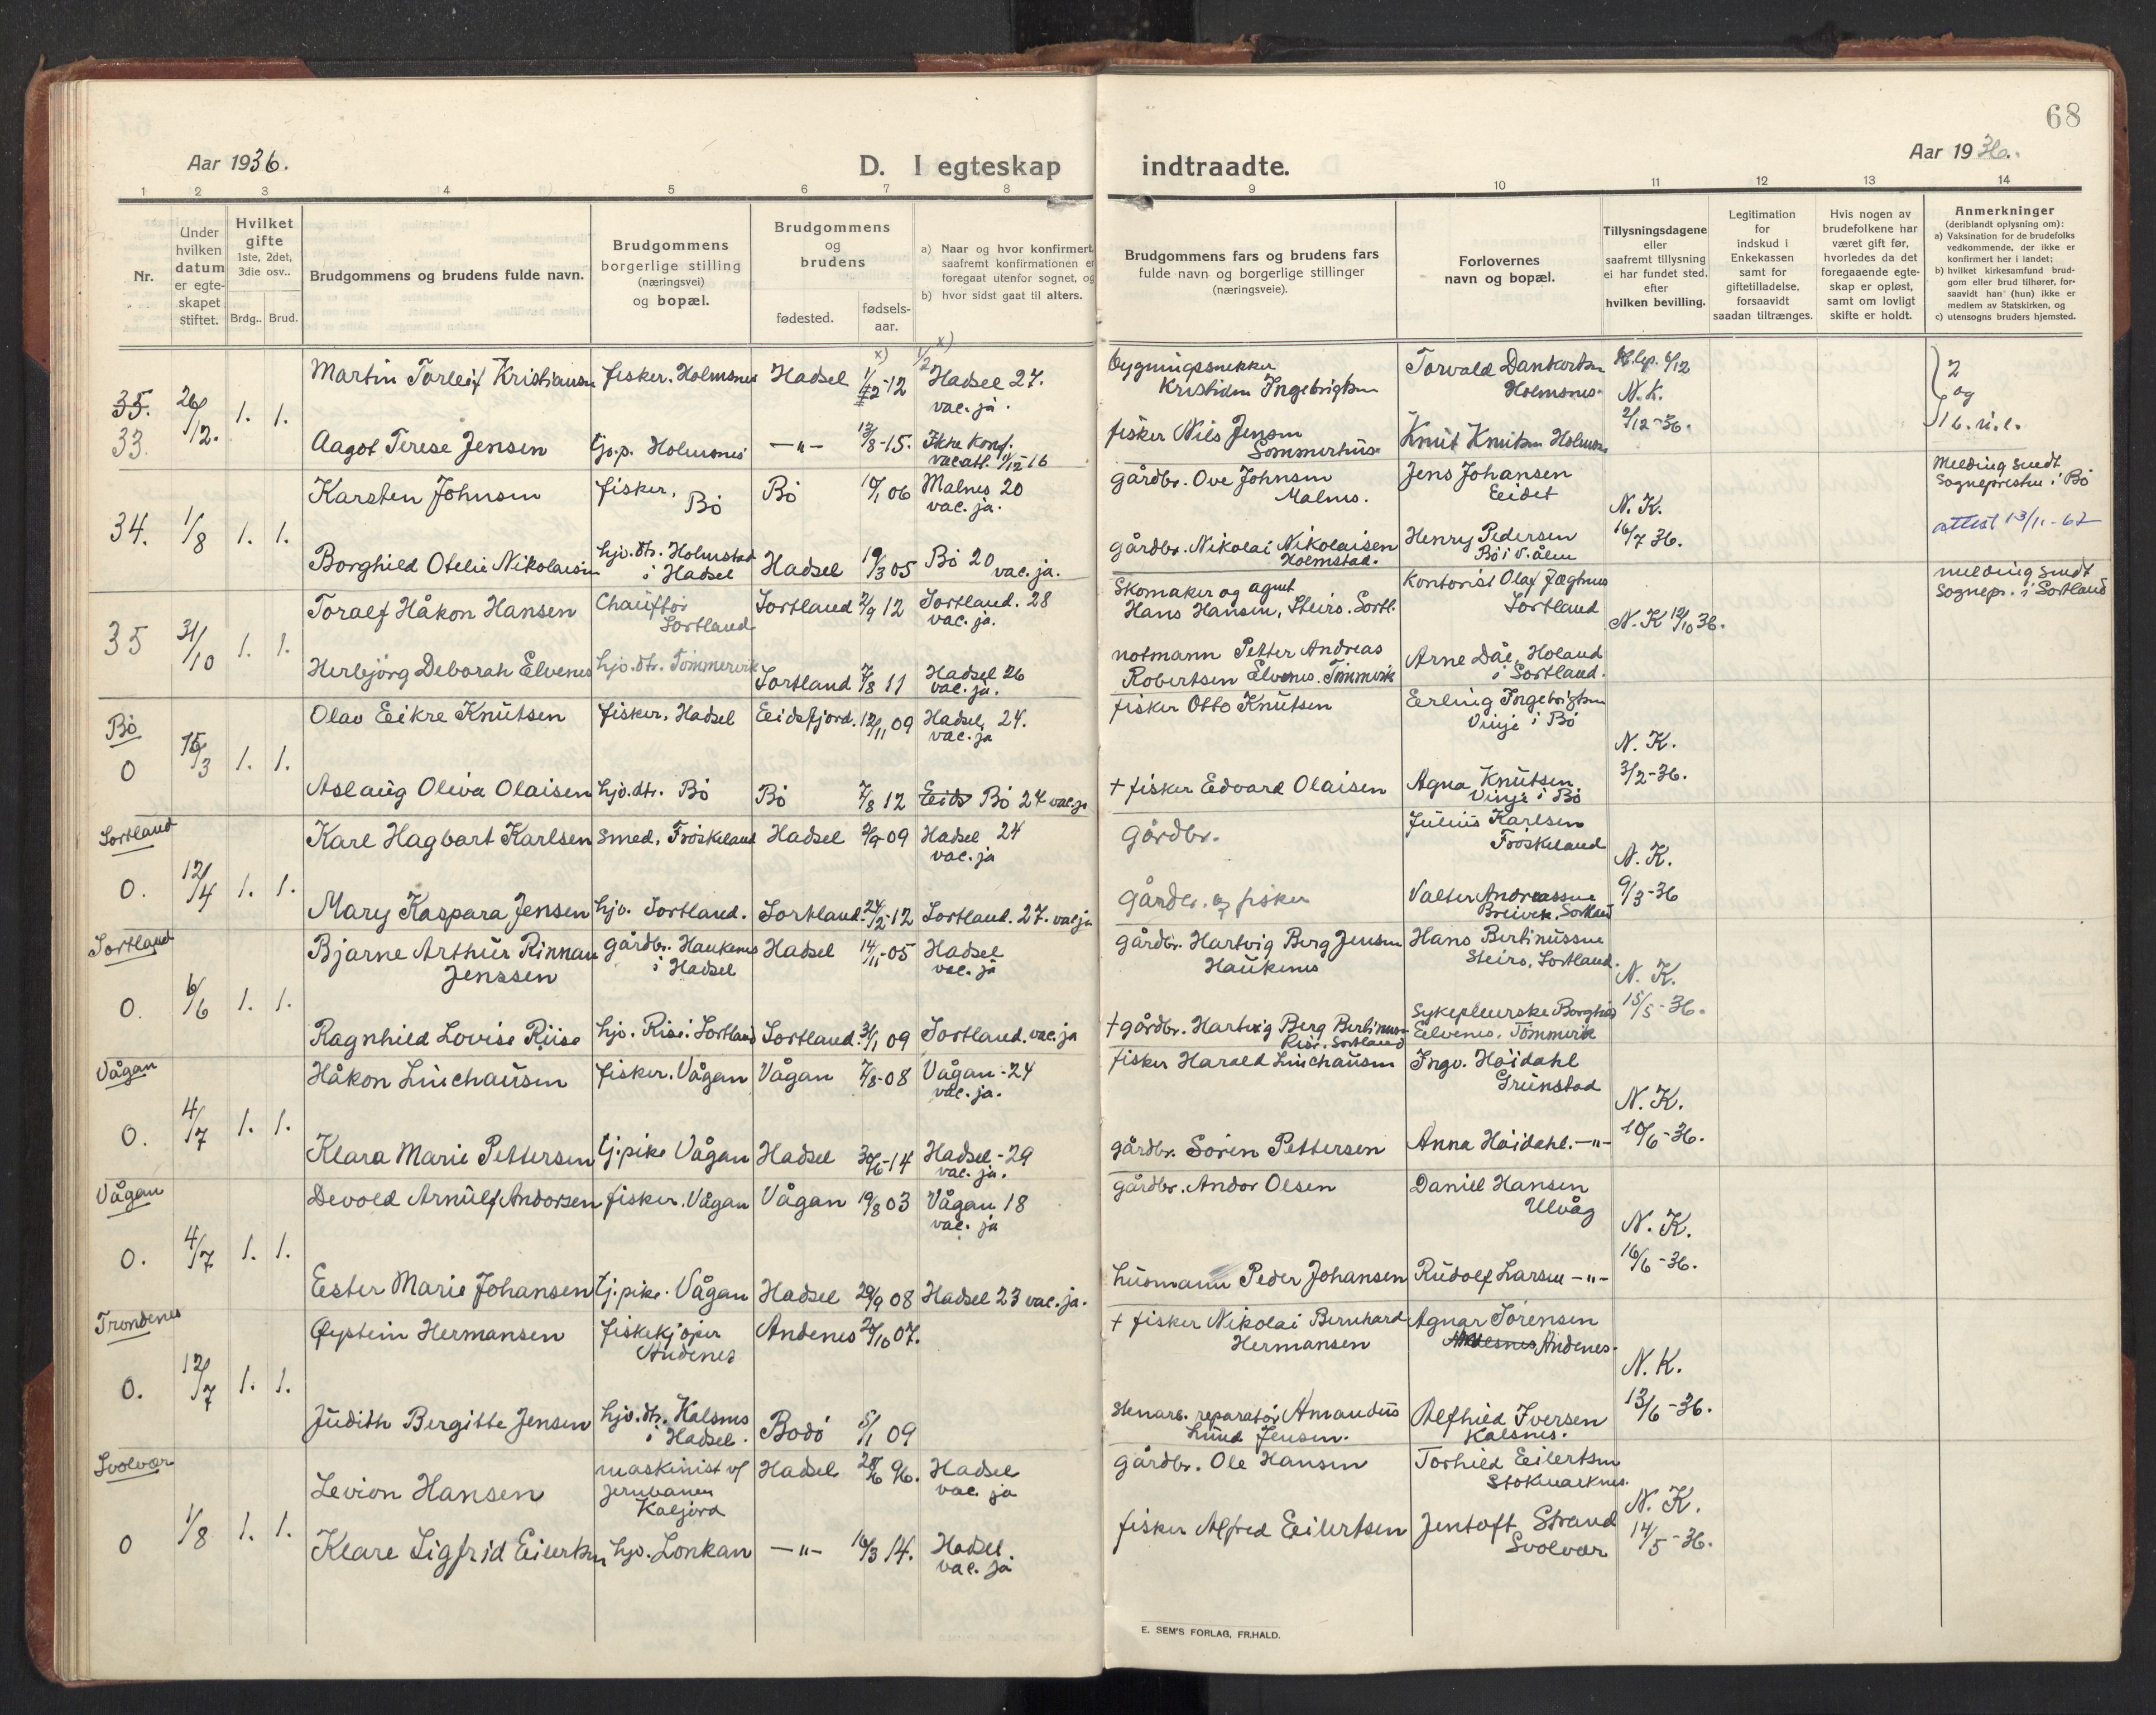 68
Aar 1936.
D. I egteskap indtraadte.
Aar 1936.
1 2 3 4 5 6 7 8 9 10 11 12 13 14
Nr.
Under
hvilken
datum
er egte-
skapet
stiftet.
Hvilket
gifte
1ste, 2det,
3die osv..
Brdg.. Brud.
Brudgommens og brudens fulde navn.
Brudgommens
borgerlige stilling
(næringsvei)
og bopæl.
Brudgommens
og
brudens
fødested.
fødsels-
aar.
a) Naar og hvor konfirmert,
saafremt konfirmationen er
foregaat utenfor sognet, og
b) hvor sidst gaat til alters.
Brudgommens fars og brudens fars
fulde navn og borgerlige stillinger
(næringsveie).
Forlovernes
navn og bopæl.
Tillysningsdagene
eller
saafremt tillysning
ei har fundet sted.
efter
hvilken bevilling.
Legitimation
for
indskud i
Enkekassen
samt for
giftetilladelse,
forsaavidt
saadan tiltrænges.
Hvis nogen av
brudefolkene har
været gift før,
hvorledes da det
foregaaende egte-
skap er opløst,
samt om lovligt
skifte er holdt.
Anmerkninger
(deriblandt oplysning om):
a) Vaksination for de brudefolks
vedkommende, der ikke er
konfirmert her i landet;
b) hvilket kirkesamfund brud-
gom eller brud tilhører, for-
saavidt han (hun) ikke er
medlem av Statskirken, og
c) utensogns bruders hjemsted.
35. 33. 26/12. 1. 1.
Martin Torleif Kristiansen fisker. Holmsnes Hadsel 1/2-12 Hadsel 27.
vac. ja.
bygningssnekker
Kristian Ingebrigtsen
Torvald Dankertsen
Holmsnes.
N. K.
2/12-36.
2
og
16. n.l.
Aagot Terese Jensen tj.p. Holmsnes —"— 13/8-15. Ikke konf.
vacatt. 11/12-16
fisker Nils Jensen
Sommerhus.
Knut Knutsen Holmsnes
34. 1/8 1. 1.
Karsten Johnsen fisker, Bö Bö 10/1 06 Malnes 20
vac. ja.
gårdbr. Ove Johnsen
Malnes.
Jens Johansen
Eidet
N. K.
16/7 36.
Melding sendt
Sognepresten i Bö
attest 13/11-62
Borghild Otelie Nikolaisen hjv. dtr. Holmstad
i Hadsel Hadsel 19/3 05 Bö 20 vac. ja.
gårdbr. Nikolai Nikolaisen
Holmstad.
Henry Pedersen
Bö i V.ålen
35 31/10 1. 1.
Toralf Håkon Hansen Chaufför
Sortland Sortland 2/9 12 Sortland. 28
vac. ja.
Skomaker og agent
Hans Hansen, Steirs. Sortl.
Kontorist Olaf Jæghus
Sortland
N. K 12/10 36.
melding sendt
Sognepr. i Sortland
Herbjörg Deborah Elvenes hjv. dtr. Tömmervik Sortland 7/8 11 Hadsel 26
vac. ja.
notmann Petter Andreas
Robertsen Elvenes. Tömmervik
Arne Dåe, Holand
i Sortland.
Bö
0 15/3 1. 1.
Olav Eikre Knutsen fisker. Hadsel Eidsfjord. 12/11 09 Hadsel, 24.
vac. ja
fisker Otto Knutsen
Erling Ingebrigtsen
Vinje i Bö
N. K.
3/2-36.
Aslaug Oliva Olaisen hjv. dtr. Bö Bö 7/8 12 Eids Bö 24 vac. ja
+ fisker Edvard Olaisen
Agna Knutsen
Vinje i Bö
Sortland
0. 12/4 1. 1.
Karl Hagbart Karlsen Smed, Fröskeland Hadsel 2/9-09 Hadsel 24
vac. ja
gårdbr.
Julius Karlsen
Fröskeland
N. K.
9/3-36
Mary Kaspara Jensen hjv. Sortland. Sortland. 24/2-12 Sortland. 27. vac ja
gårdbr. og fisker
Valter Andreassen
Breivik, Sortland
Sortland
0. 6/6 1. 1.
Bjarne Arthur Rinnan
Jenssen gårdbr. Haukenes
i Hadsel Hadsel 14/11-05 Hadsel
vac. ja
gårdbr. Hartvig Berg Jensen
Haukenes
Hans Bertinussen
Steirs, Sortland.
N. K.
15/5-36.
Ragnhild Lovise Riise hjv. Rise i Sortland Sortland. 31/1 09 Sortland. vac. ja
+ gårdbr. Hartvig Berg Bertinus-
Rise. Sortland
Sykepleierske Borghild
Eilvenes. Tömmervik
Vågan
0. 4/7 1. 1.
Håkon Linchausen fisker. Vågan Vågan 7/8-08 Vågan-24
vac. ja.
fisker Harald Linchausen
Ingv. Höidahl
Grünstad
N. K.
10/6-36.
Klara Marie Pettersen tj. pike Vågan Hadsel 30/6-14 Hadsel-29
vac. ja.
gårdbr. Sören Pettersen
Anna Höidahl. —"—
Vågan
0. 4/7 1. 1.
Devold Arnulf Andorsen fisker. Vågan Vågan 19/8 03 Vågan 18
vac. ja
gårdbr. Andor Olsen
Daniel Hansen
Ulvåg
N. K.
16/6-36.
Ester Marie Johansen tj. pike. Vågan Hadsel 29/9 08 Hadsel 23 vac. ja.
husmann Peder Johansen
Rudolf Larsen —"—
Trondenes
0. 12/7 1. 1.
Øystein Hermansen fiskekjöper
Andenes Andenes 27/10 07.
+ fisker Nikolai Bernhard
Hermansen
Agnar Sörensen
Andenes.
N. K.
13/6-36.
Judith Bergitte Jensen hjv. dtr. Kalsnes
i Hadsel. Bodö 5/1 09
Stenarb. reparatör Amandus
Lund Jensen.
Alfhild Iversen
Kalsnes.
Svolvær
0 1/8 1. 1.
Levion Hansen maskinist v/
jernbanen
Kaljord Hadsel 20/6 96. Hadsel
vac. ja
gårdbr. Ole Hansen
Torhild Eilertsen
Stokmarknes.
N. K.
14/5-36.
Klare Sigfrid Eilertsen hjv. Lonkan —"— 16/3 14. Hadsel
vac. ja
fisker Alfred Eilertsen
Jentoft Strand
Svolvær
E. SEM'S FORLAG, FR.HALD.